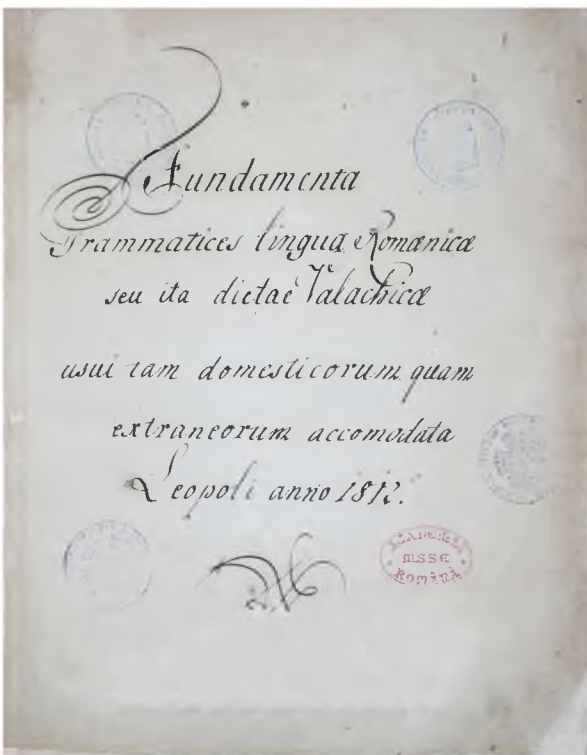 Fundamenta
Grammatices linguæ Romænicæ
seu ita dictae Valachicæ
usui tam domesticorum quam
extraneorum accomodata
Leopoli anno 1812.
ACADEMIA
MSSE
ROMÂNĂ